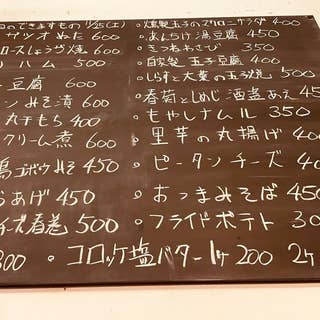 のできますもの 11/25(土)
ガツオぬた 600
ロースしょうが焼 600
ハム 500
豆腐 600
ンみそ漬 600
丸干もろ 400
クリーム煮 600
鶏ゴボウみそ 450
あげ 450
チーズ春巻 500
300
・燻製玉子のマカロニサラダ 400
・あんかけ湯豆腐 450
・きつねわさび 350
・自家製 玉子豆腐 400
・しらすと大葉の玉子焼 500
・春菊としめじ酒盗あえ 45
・もやしナムル 350
・里芋の丸揚げ 400
・ピータンチーズ 40
・おつまみそば 450
・フライドポテト 30
・コロッケ塩バター 1ケ 200 2ケ